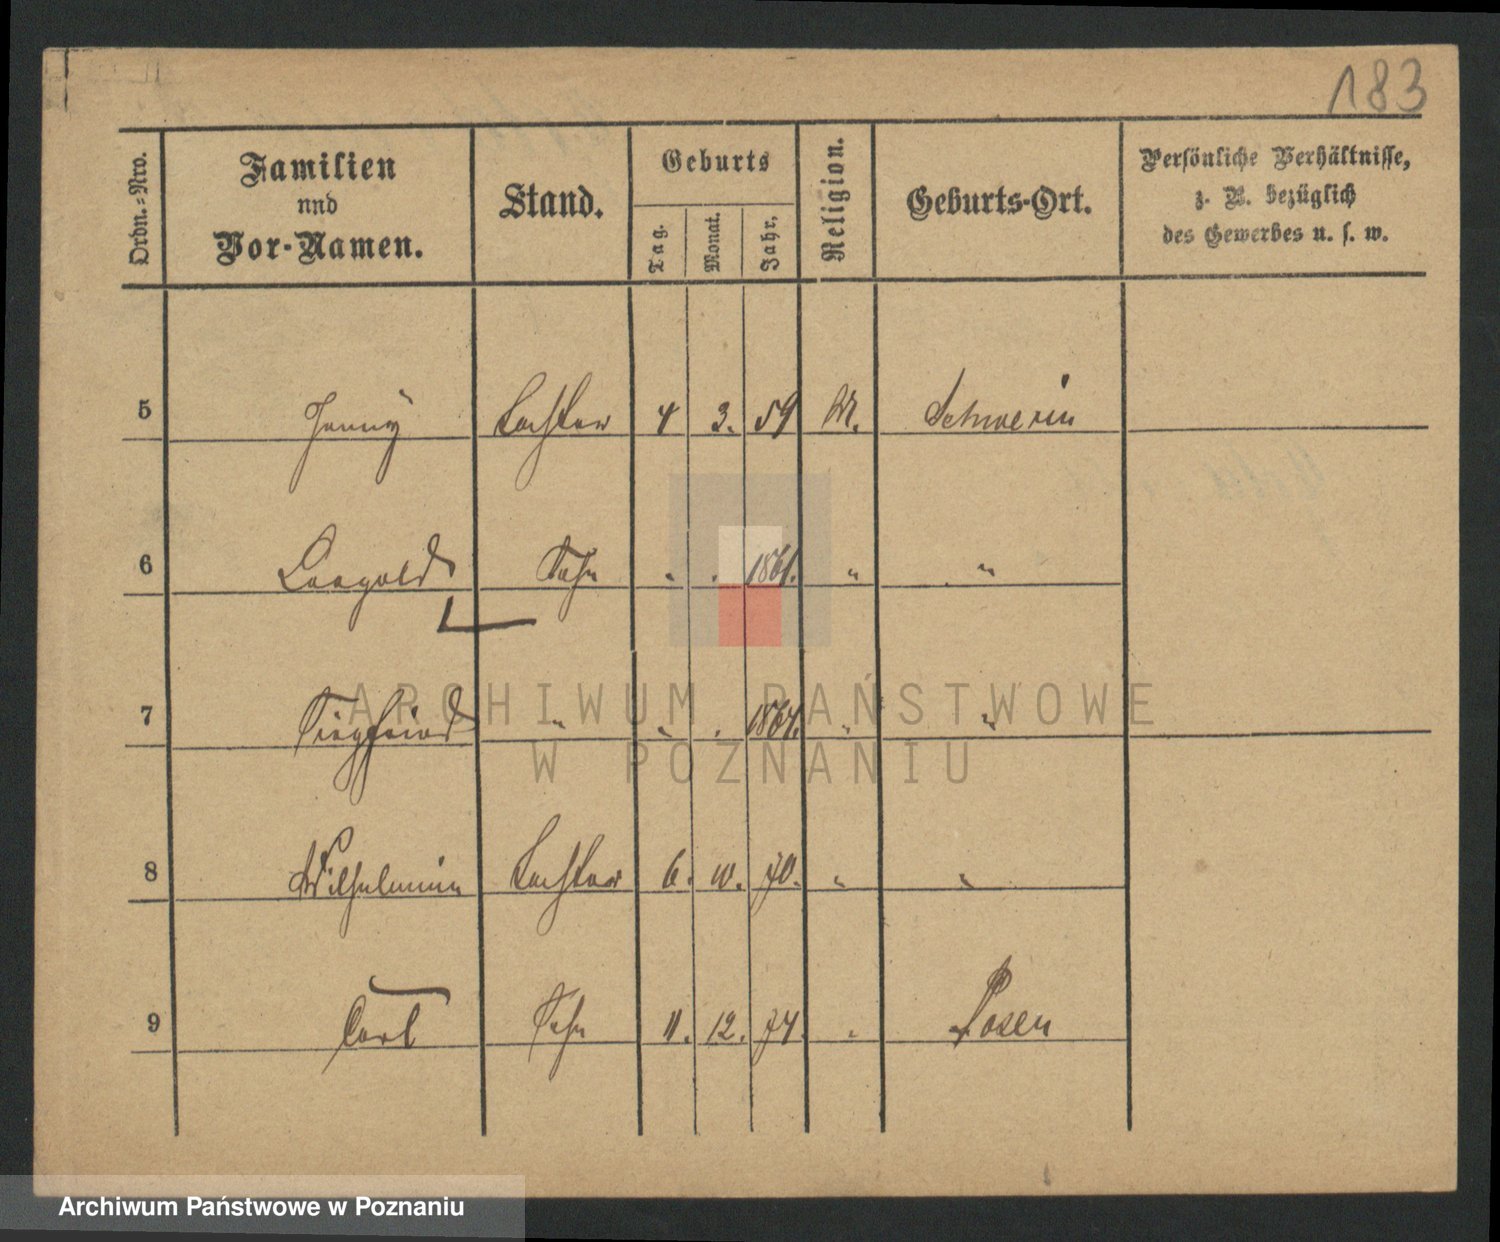 183
Ordn.-Nro.
Familien
und
Vor-Namen.
Stand.
Geburts
Tag.
Monat.
Jahr.
Religion.
Geburts-Ort.
Persönliche Verhältnisse,
z. B. bezüglich
des Gewerbes u. s. w.
5 Jenny Tochter 4 3. 59 M. Schwerin
6 Leopold Sohn " . 1861. " "
7 Siegfried " " . 1864. " "
8 Wilhelmine Tochter 6. 10. 70. " "
9 Carl Sohn 11. 12. 74. " Posen
ARCHIWUM PAŃSTWOWE
W POZNANIU
Archiwum Państwowe w Poznaniu